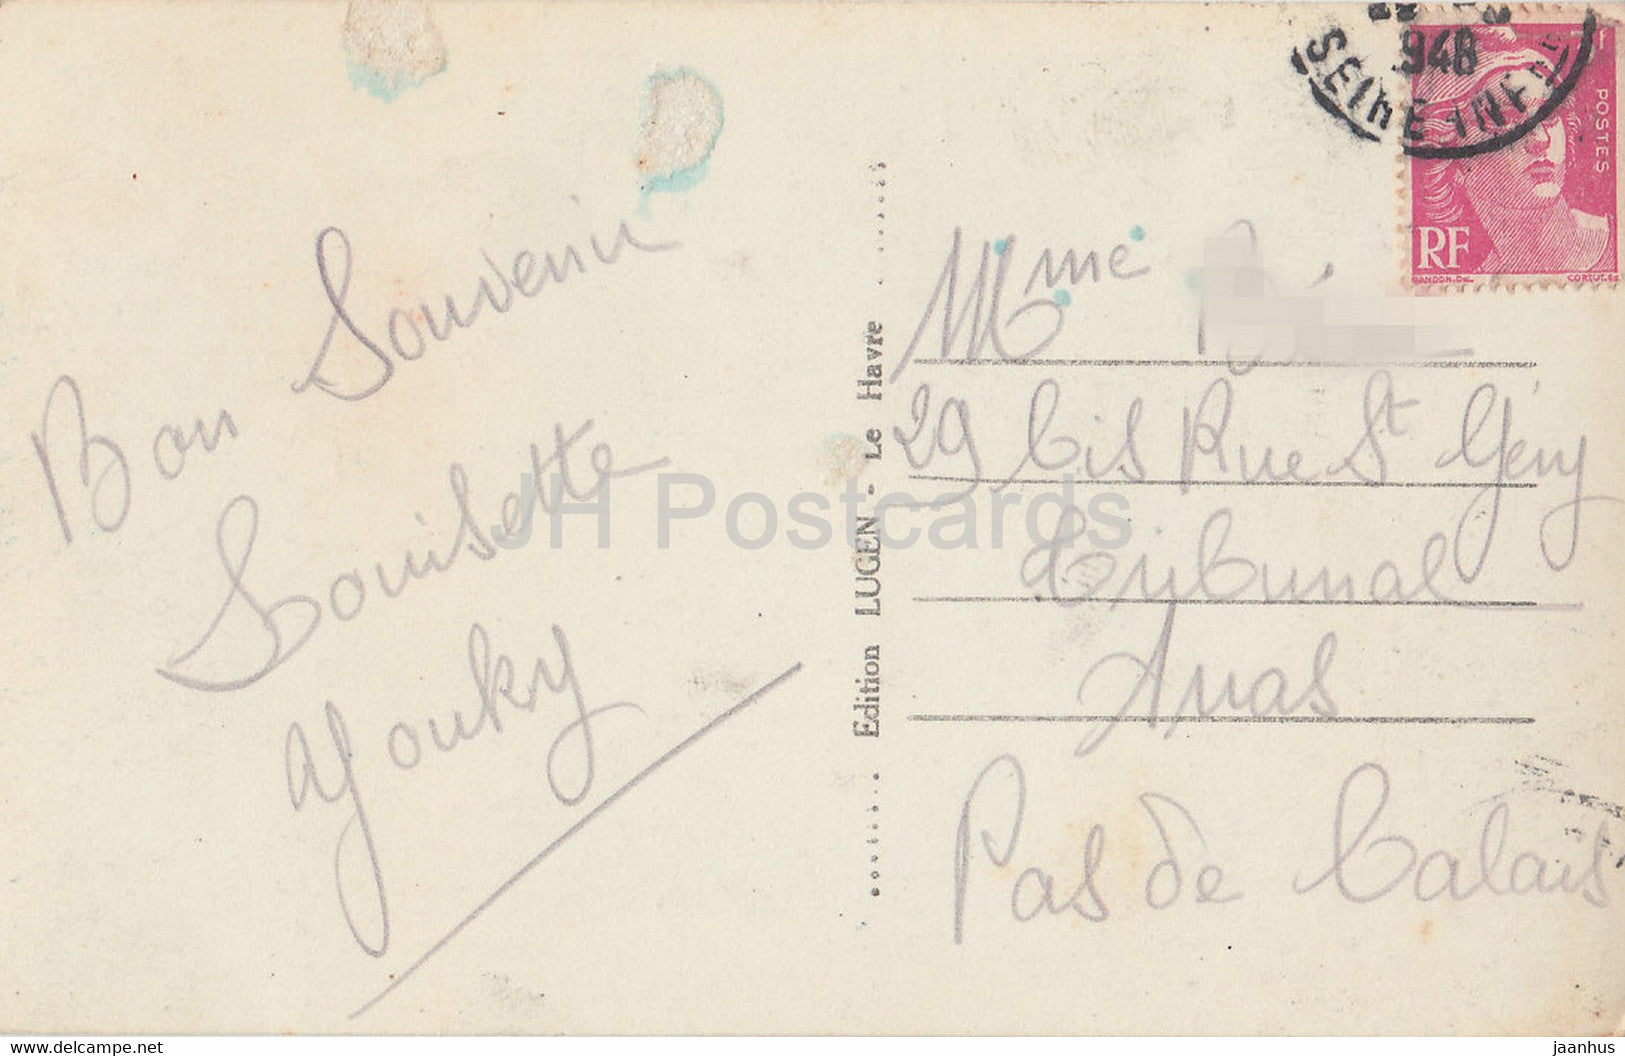 Bon Souvenir
Louisette
Youky
Edition LUGEN - Le Havre
948
SEINE INFRE
POSTES
RF
GANDON.DEL
CORTOT.SC
Mme
29 bis Rue St Géry
tribunal
Arras
Pas de Calais
JH Postcards
www.delcampe.net
jaanhus